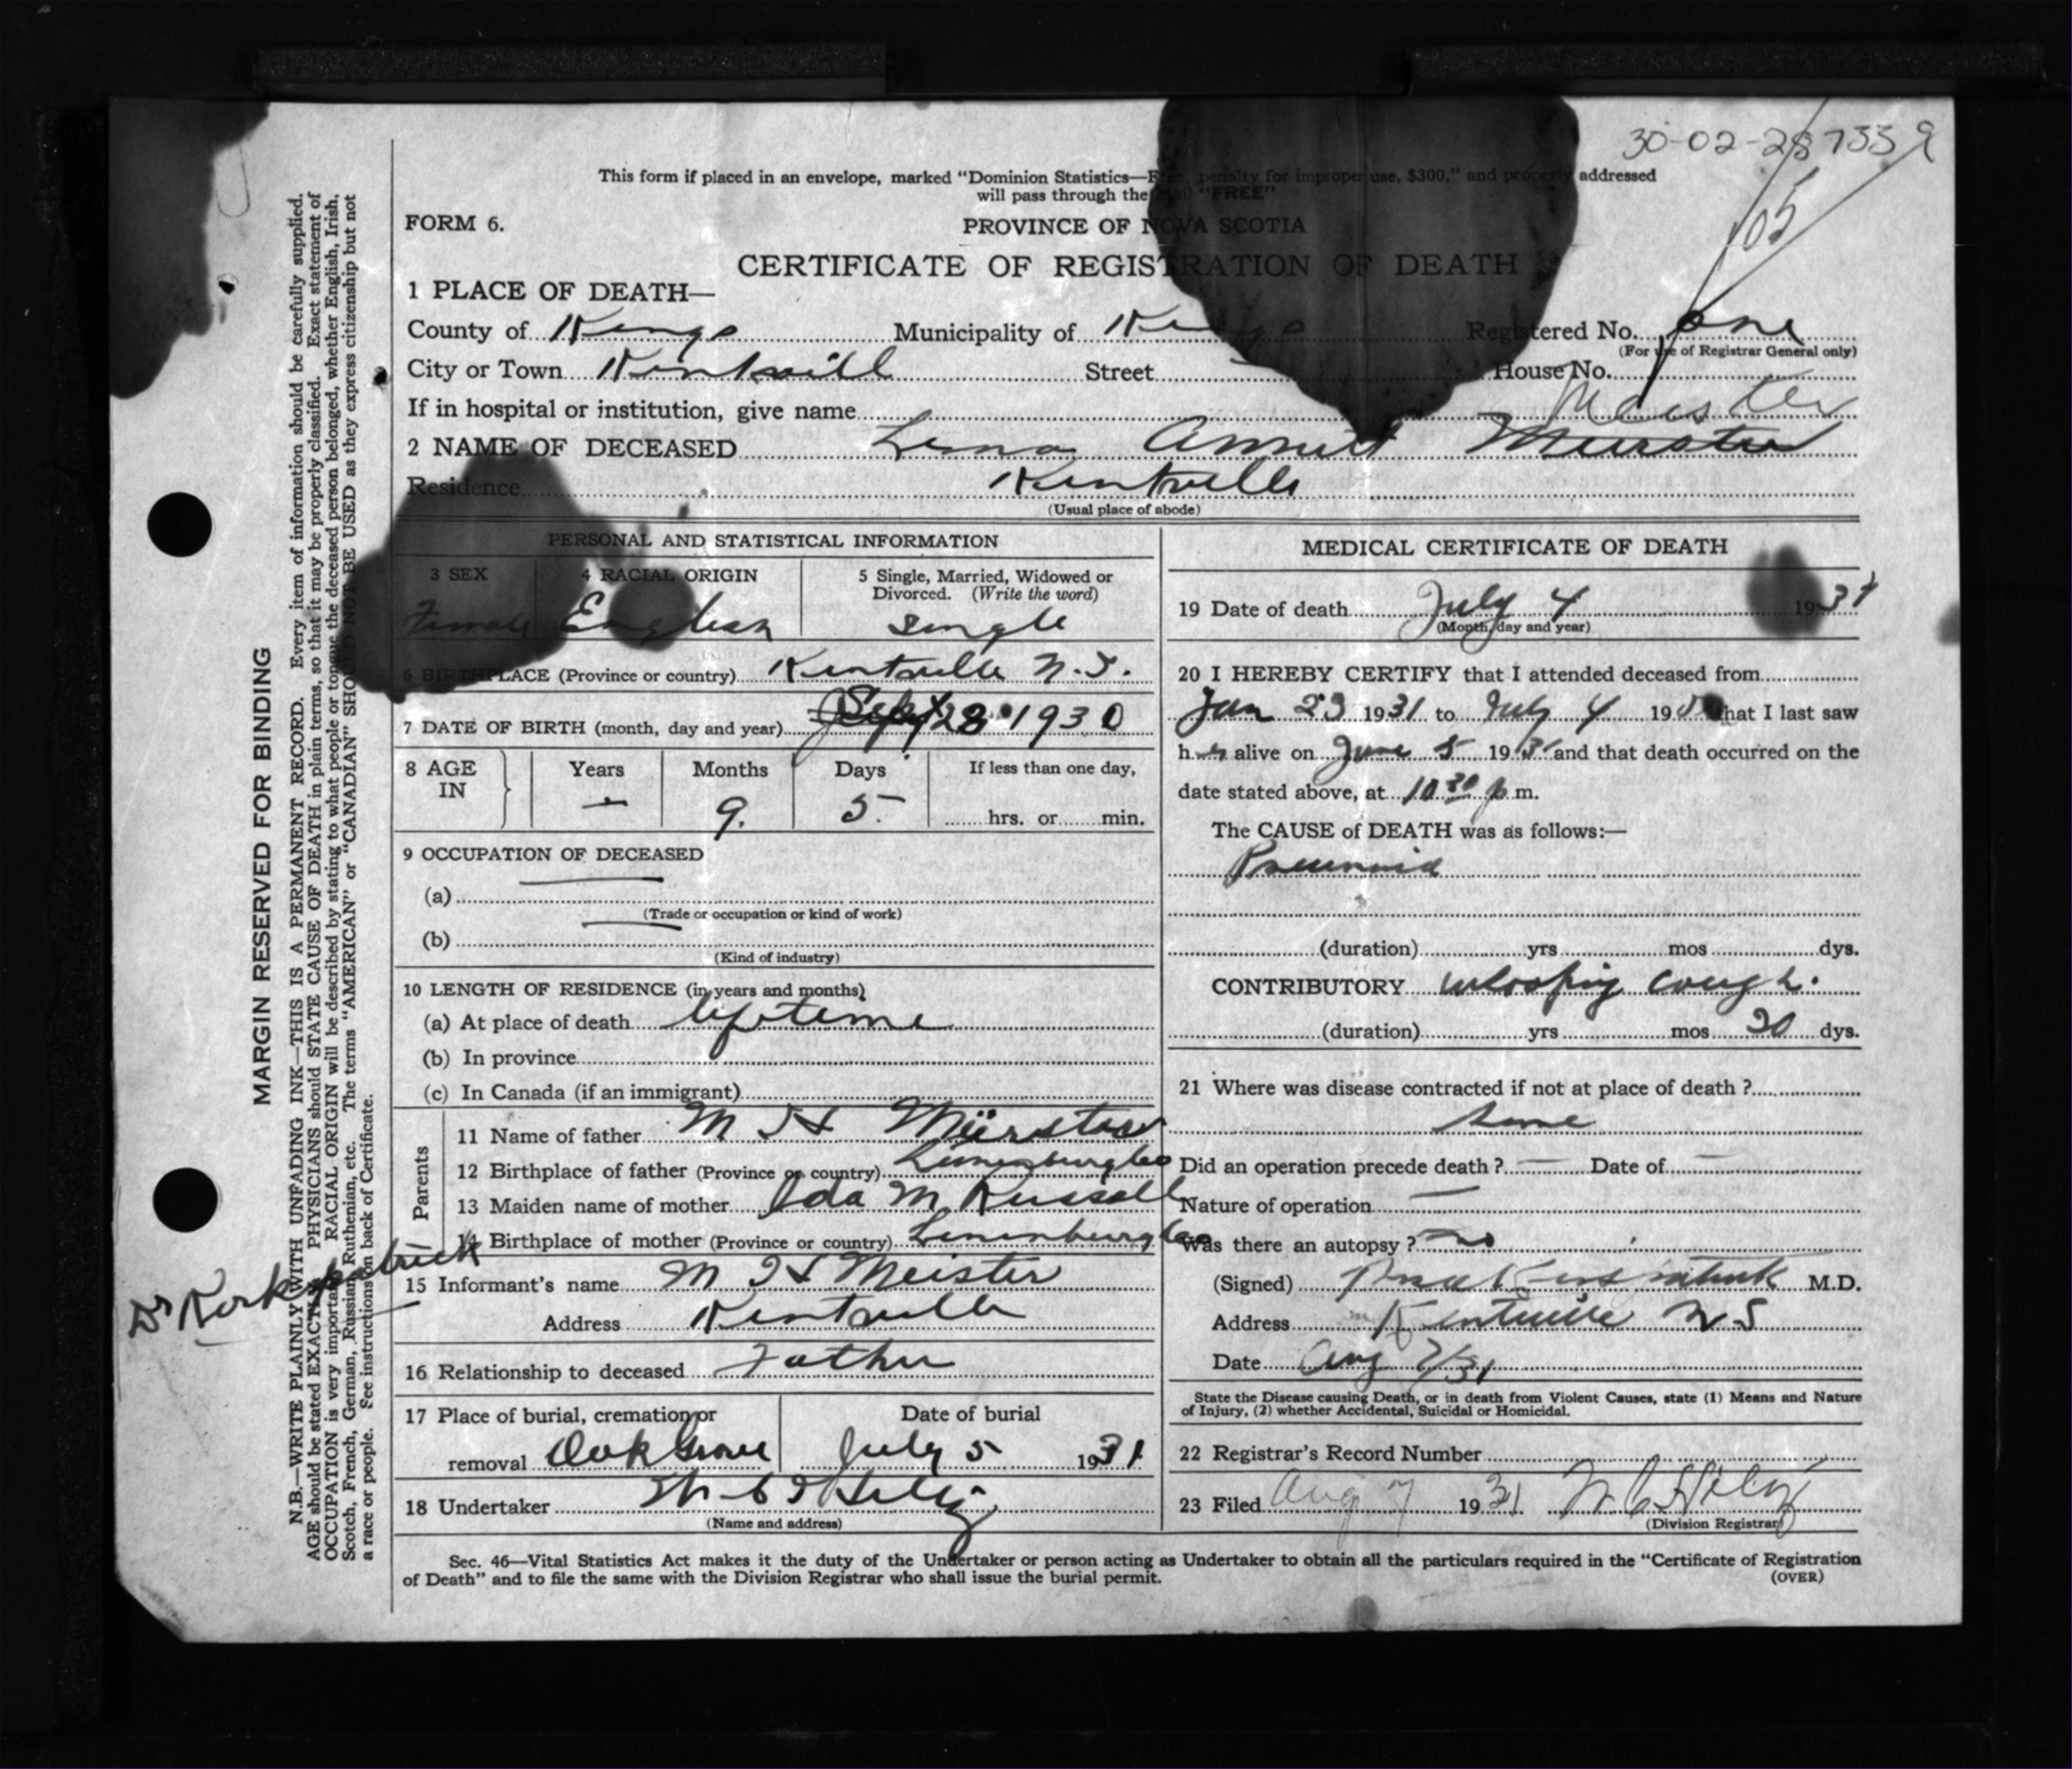 30-02-287339
105
This form if placed in an envelope, marked "Dominion Statistics—Free, penalty for improper use, $300," and properly addressed
will pass through the Mail "FREE"
FORM 6.
PROVINCE OF NOVA SCOTIA
CERTIFICATE OF REGISTRATION OF DEATH
1 PLACE OF DEATH—
County of Kings Municipality of Kings Registered No. one
(For use of Registrar General only)
City or Town Kentvill Street House No.
If in hospital or institution, give name Meister
2 NAME OF DECEASED Lena
Residence Kentville
(Usual place of abode)
PERSONAL AND STATISTICAL INFORMATION
3 SEX 4 RACIAL ORIGIN 5 Single, Married, Widowed or
Divorced. (Write the word)
Female English Single
6 BIRTHPLACE (Province or country) Kentville N.S.
7 DATE OF BIRTH (month, day and year) Sept 28 1930
8 AGE IN Years Months Days If less than one day,
— 9. 5 hrs. or min.
9 OCCUPATION OF DECEASED
(a)
(Trade or occupation or kind of work)
(b)
(Kind of industry)
10 LENGTH OF RESIDENCE (in years and months)
(a) At place of death lifetime
(b) In province
(c) In Canada (if an immigrant)
Parents
11 Name of father M H
12 Birthplace of father (Province or country) Lunenburg Co
13 Maiden name of mother Ida M Russell
14 Birthplace of mother (Province or country) Lunenburg Co
15 Informant's name Meister
Address Kentville
16 Relationship to deceased Father
17 Place of burial, cremation or Date of burial
removal Oak Grove July 5 1931
18 Undertaker
(Name and address)
MEDICAL CERTIFICATE OF DEATH
19 Date of death July 4 1931
(Month, day and year)
20 I HEREBY CERTIFY that I attended deceased from
Jan 23 1931 to July 4 19 that I last saw
her alive on June 5 1931 and that death occurred on the
date stated above, at 10 30 p m.
The CAUSE of DEATH was as follows:—
(duration) yrs mos dys.
CONTRIBUTORY whooping cough.
(duration) yrs mos 20 dys.
21 Where was disease contracted if not at place of death?
same
Did an operation precede death? — Date of —
Nature of operation —
Was there an autopsy? no
(Signed) Kirkpatrick M.D.
Address Kentville N S
Date Aug 7/31
State the Disease causing Death, or in death from Violent Causes, state (1) Means and Nature
of Injury, (2) whether Accidental, Suicidal or Homicidal.
22 Registrar's Record Number
23 Filed Aug 7 1931
(Division Registrar)
Sec. 46—Vital Statistics Act makes it the duty of the Undertaker or person acting as Undertaker to obtain all the particulars required in the "Certificate of Registration
of Death" and to file the same with the Division Registrar who shall issue the burial permit.
(OVER)
MARGIN RESERVED FOR BINDING
N.B.—WRITE PLAINLY WITH UNFADING INK—THIS IS A PERMANENT RECORD. Every item of information should be carefully supplied.
AGE should be stated EXACTLY. PHYSICIANS should STATE CAUSE OF DEATH in plain terms, so that it may be properly classified. Exact statement of
OCCUPATION is very important. RACIAL ORIGIN will be described by stating to what people or tongue the deceased person belonged, whether English, Irish,
Scotch, French, German, Russian, Ruthenian, etc. The terms "AMERICAN" or "CANADIAN" SHOULD NOT BE USED as they express citizenship but not
a race or people. See instructions on back of Certificate.
Dr Kirkpatrick